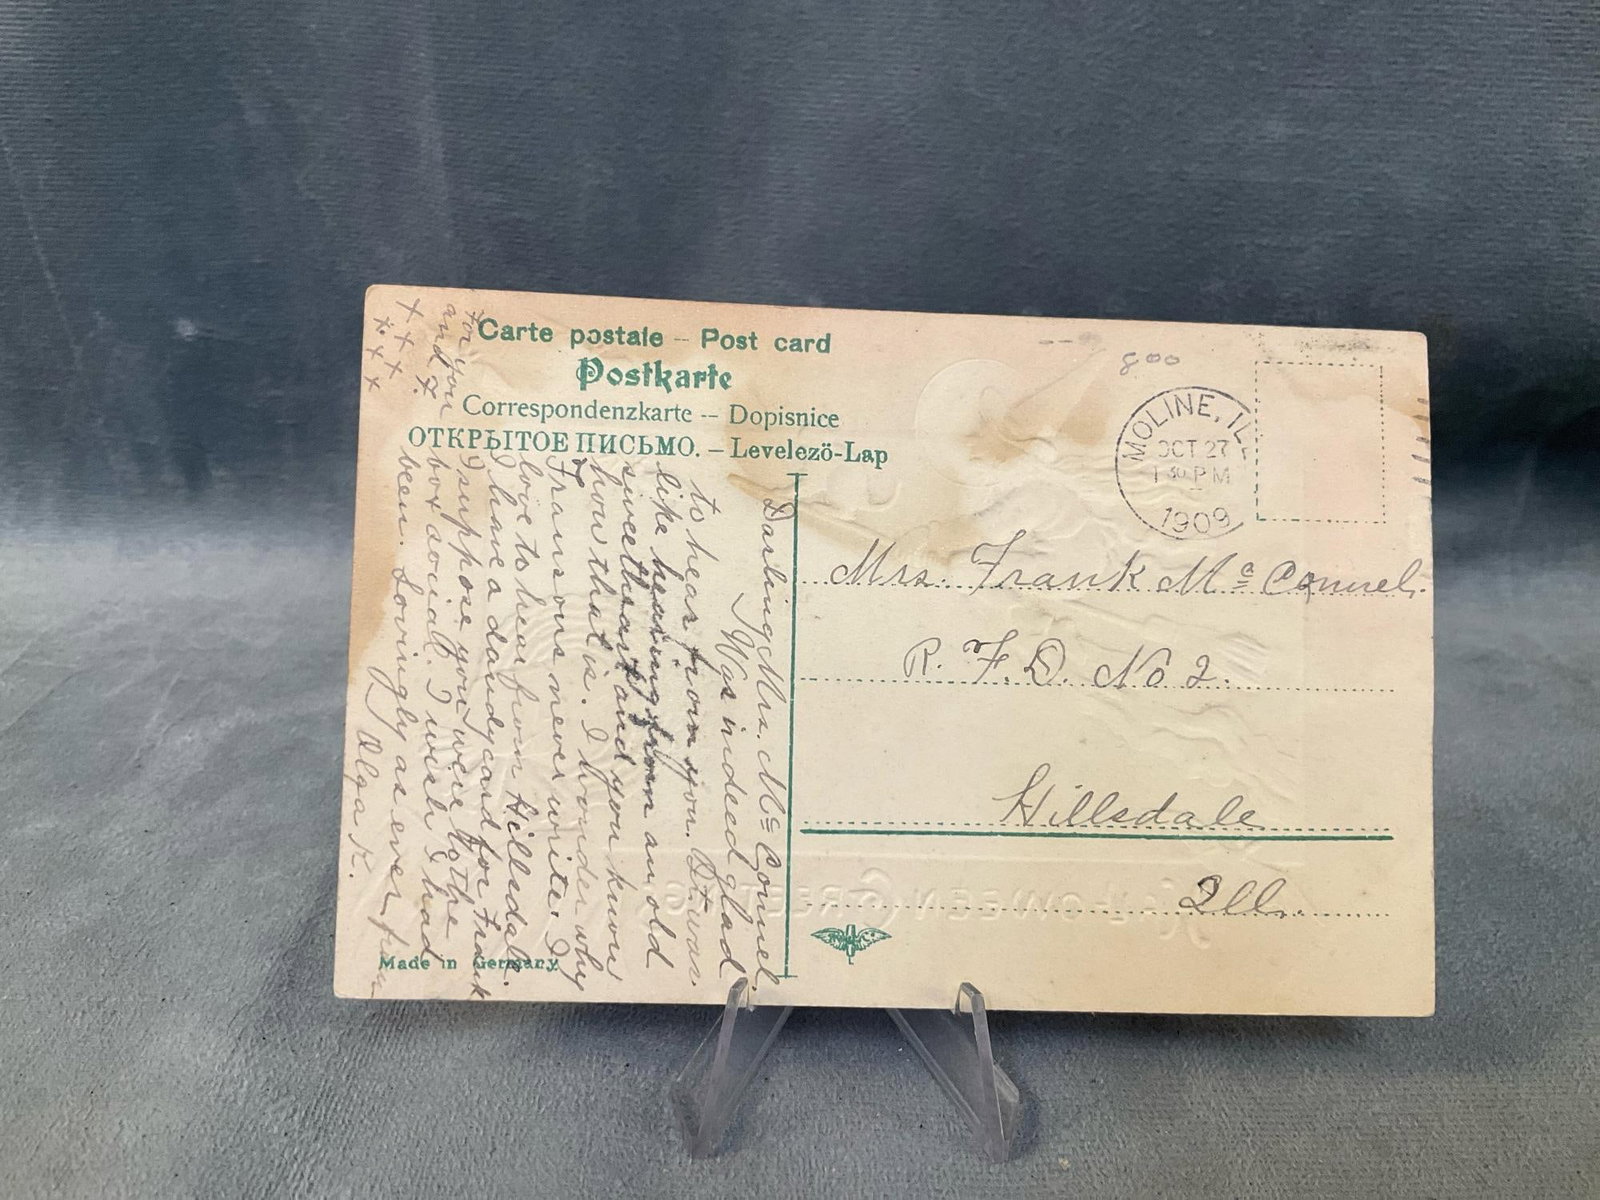 Carte postale – Post card
Postkarte
Correspondenzkarte -- Dopisnice
ОТКРЫТОЕ ПИСЬМО. – Levelezö-Lap
800
MOLINE, ILL
OCT 27
1 30 PM
1909
Mrs. Frank Mc Connel.
R. F. D. No 2.
Hillsdale
Ill.
Darling Mrs. Mc Connel.
I Was indeed glad
to hear from you. It was
like hearing from an old
sweetheart and you know
how that is. I wonder why
Fransons never write. I
love to hear from Hillsdale.
I have a dandy card for Frank
I suppose you were to the
box social. I wish I had
been. Lovingly as ever from
Olga K.
for you
and F.
x x x x
x x x x
Made in Germany.
HALLOWEEN GREETINGS